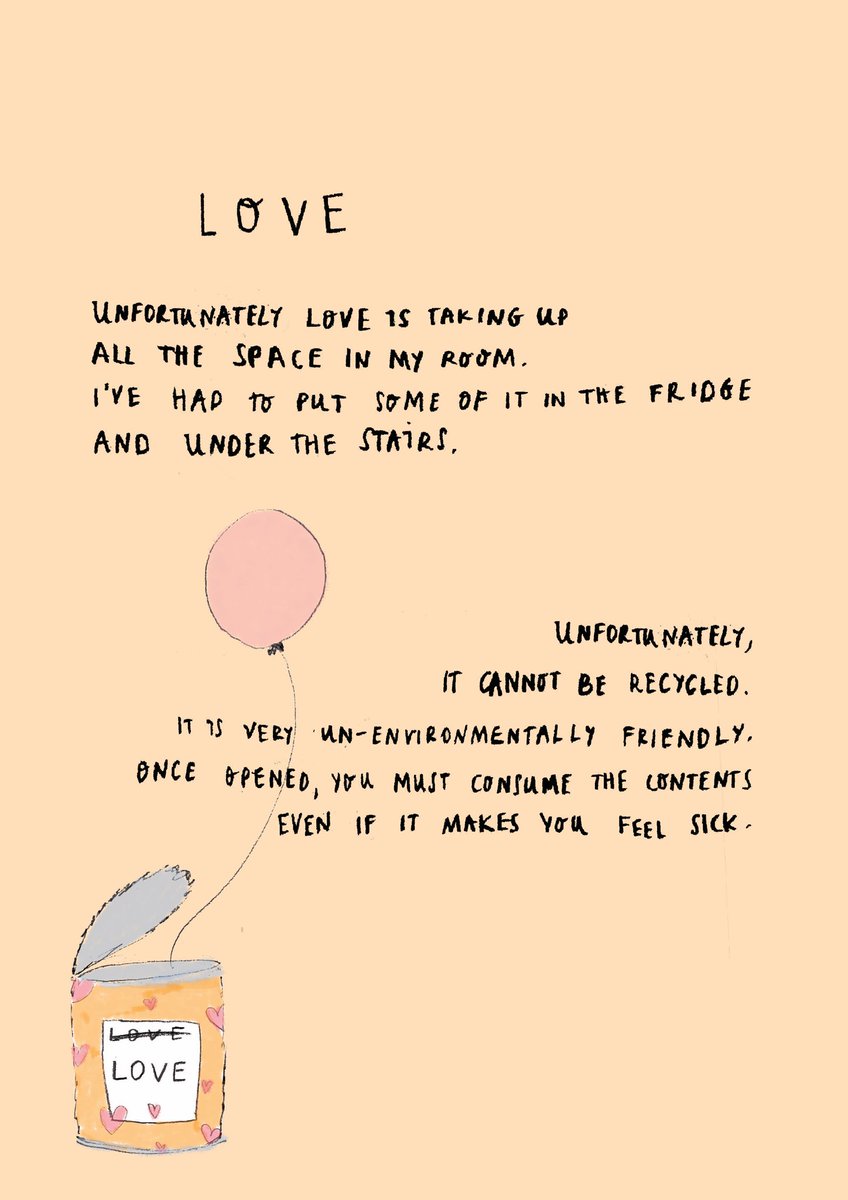 LOVE
UNFORTUNATELY LOVE IS TAKING UP
ALL THE SPACE IN MY ROOM.
I'VE HAD TO PUT SOME OF IT IN THE FRIDGE
AND UNDER THE STAIRS.
UNFORTUNATELY,
IT CANNOT BE RECYCLED.
IT IS VERY UN-ENVIRONMENTALLY FRIENDLY.
ONCE OPENED, YOU MUST CONSUME THE CONTENTS
EVEN IF IT MAKES YOU FEEL SICK.
LOVE
LOVE